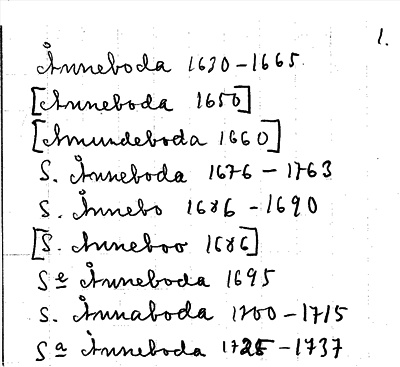 1.
Ånneboda 1630-1665
[Anneboda 1650]
[Amundeboda 1660]
S. Ånneboda 1676-1763
S. Ånnebo 1686-1690
[S. Anneboo 1686]
Se Ånneboda 1695
S. Ånnaboda 1700-1715
Sa Ånneboda 1725-1737